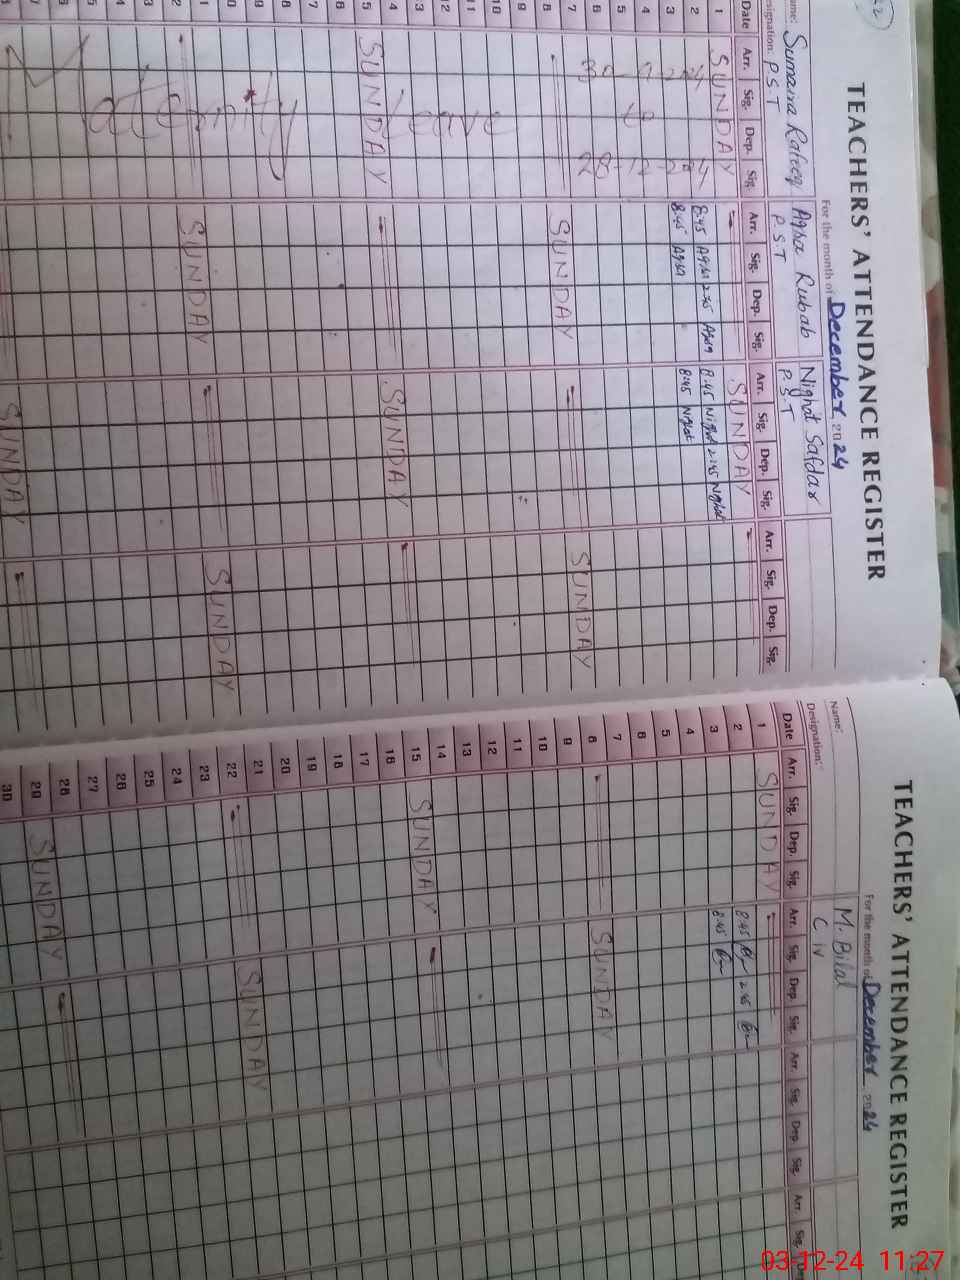 TEACHERS' ATTENDANCE REGISTER
For the month of December 2024
Name: Sumaira Rafeeq Aqsa Rubab Nighat Safdar
Designation: P.S.T P.S.T P.S.T
Date Arr. Sig. Dep. Sig. Arr. Sig. Dep. Sig. Arr. Sig. Dep. Sig. Arr. Sig. Dep. Sig.
1 SUNDAY SUNDAY
2 8:45 Aqsa 2:45 Aqsa 8:45 Nighat 2:45 Nighat
3 8:45 Aqsa 8:45 Nighat
4
5
6
7
8 SUNDAY SUNDAY
9
10
11
12
to
Maternity Leave
SUNDAY SUNDAY
SUNDAY SUNDAY
SUNDAY
TEACHERS' ATTENDANCE REGISTER
For the month of December 2024
Name: M. Bilal
Designation: C IV
Date Arr. Sig. Dep. Sig. Arr. Sig. Dep. Sig. Arr. Sig. Dep. Sig. Arr. Sig. Dep.
1 SUNDAY
2 8:45 2:45
3 8:45
4
5
6
7
8 SUNDAY
9
10
11
12
13
14
15 SUNDAY
16
17
18
19
20
21
22 SUNDAY
23
24
25
26
27
28
29 SUNDAY
30
03-12-24 11:27